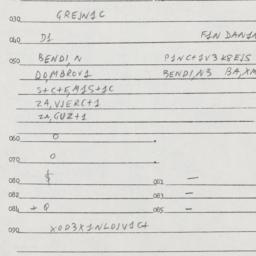 030. GREJN1C
040. D1 F1N DAN1A
050. BENDI,N P1NC+1V3 K8EJS
DO,MBROV1 BENDI,N3 BA,XM
S+C+E,M1S+1C
ZA,VJERC+1
ZA,GUZ+1
060. 0
070. 0
080. $ 082. —
082. 083. —
084. +0 085. —
090. XOD3X1NLOJV1C+